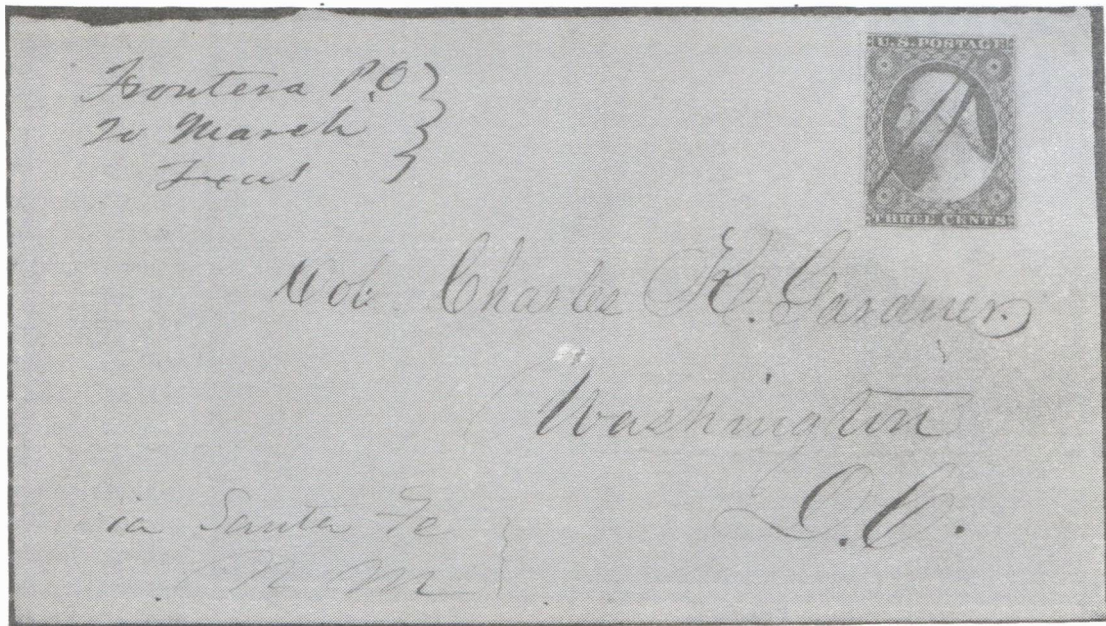 Frontera P.O
20 March
Texas
U.S. POSTAGE
THREE CENTS
Col. Charles K. Gardner
Washington
D.C.
via Santa Fe
N M